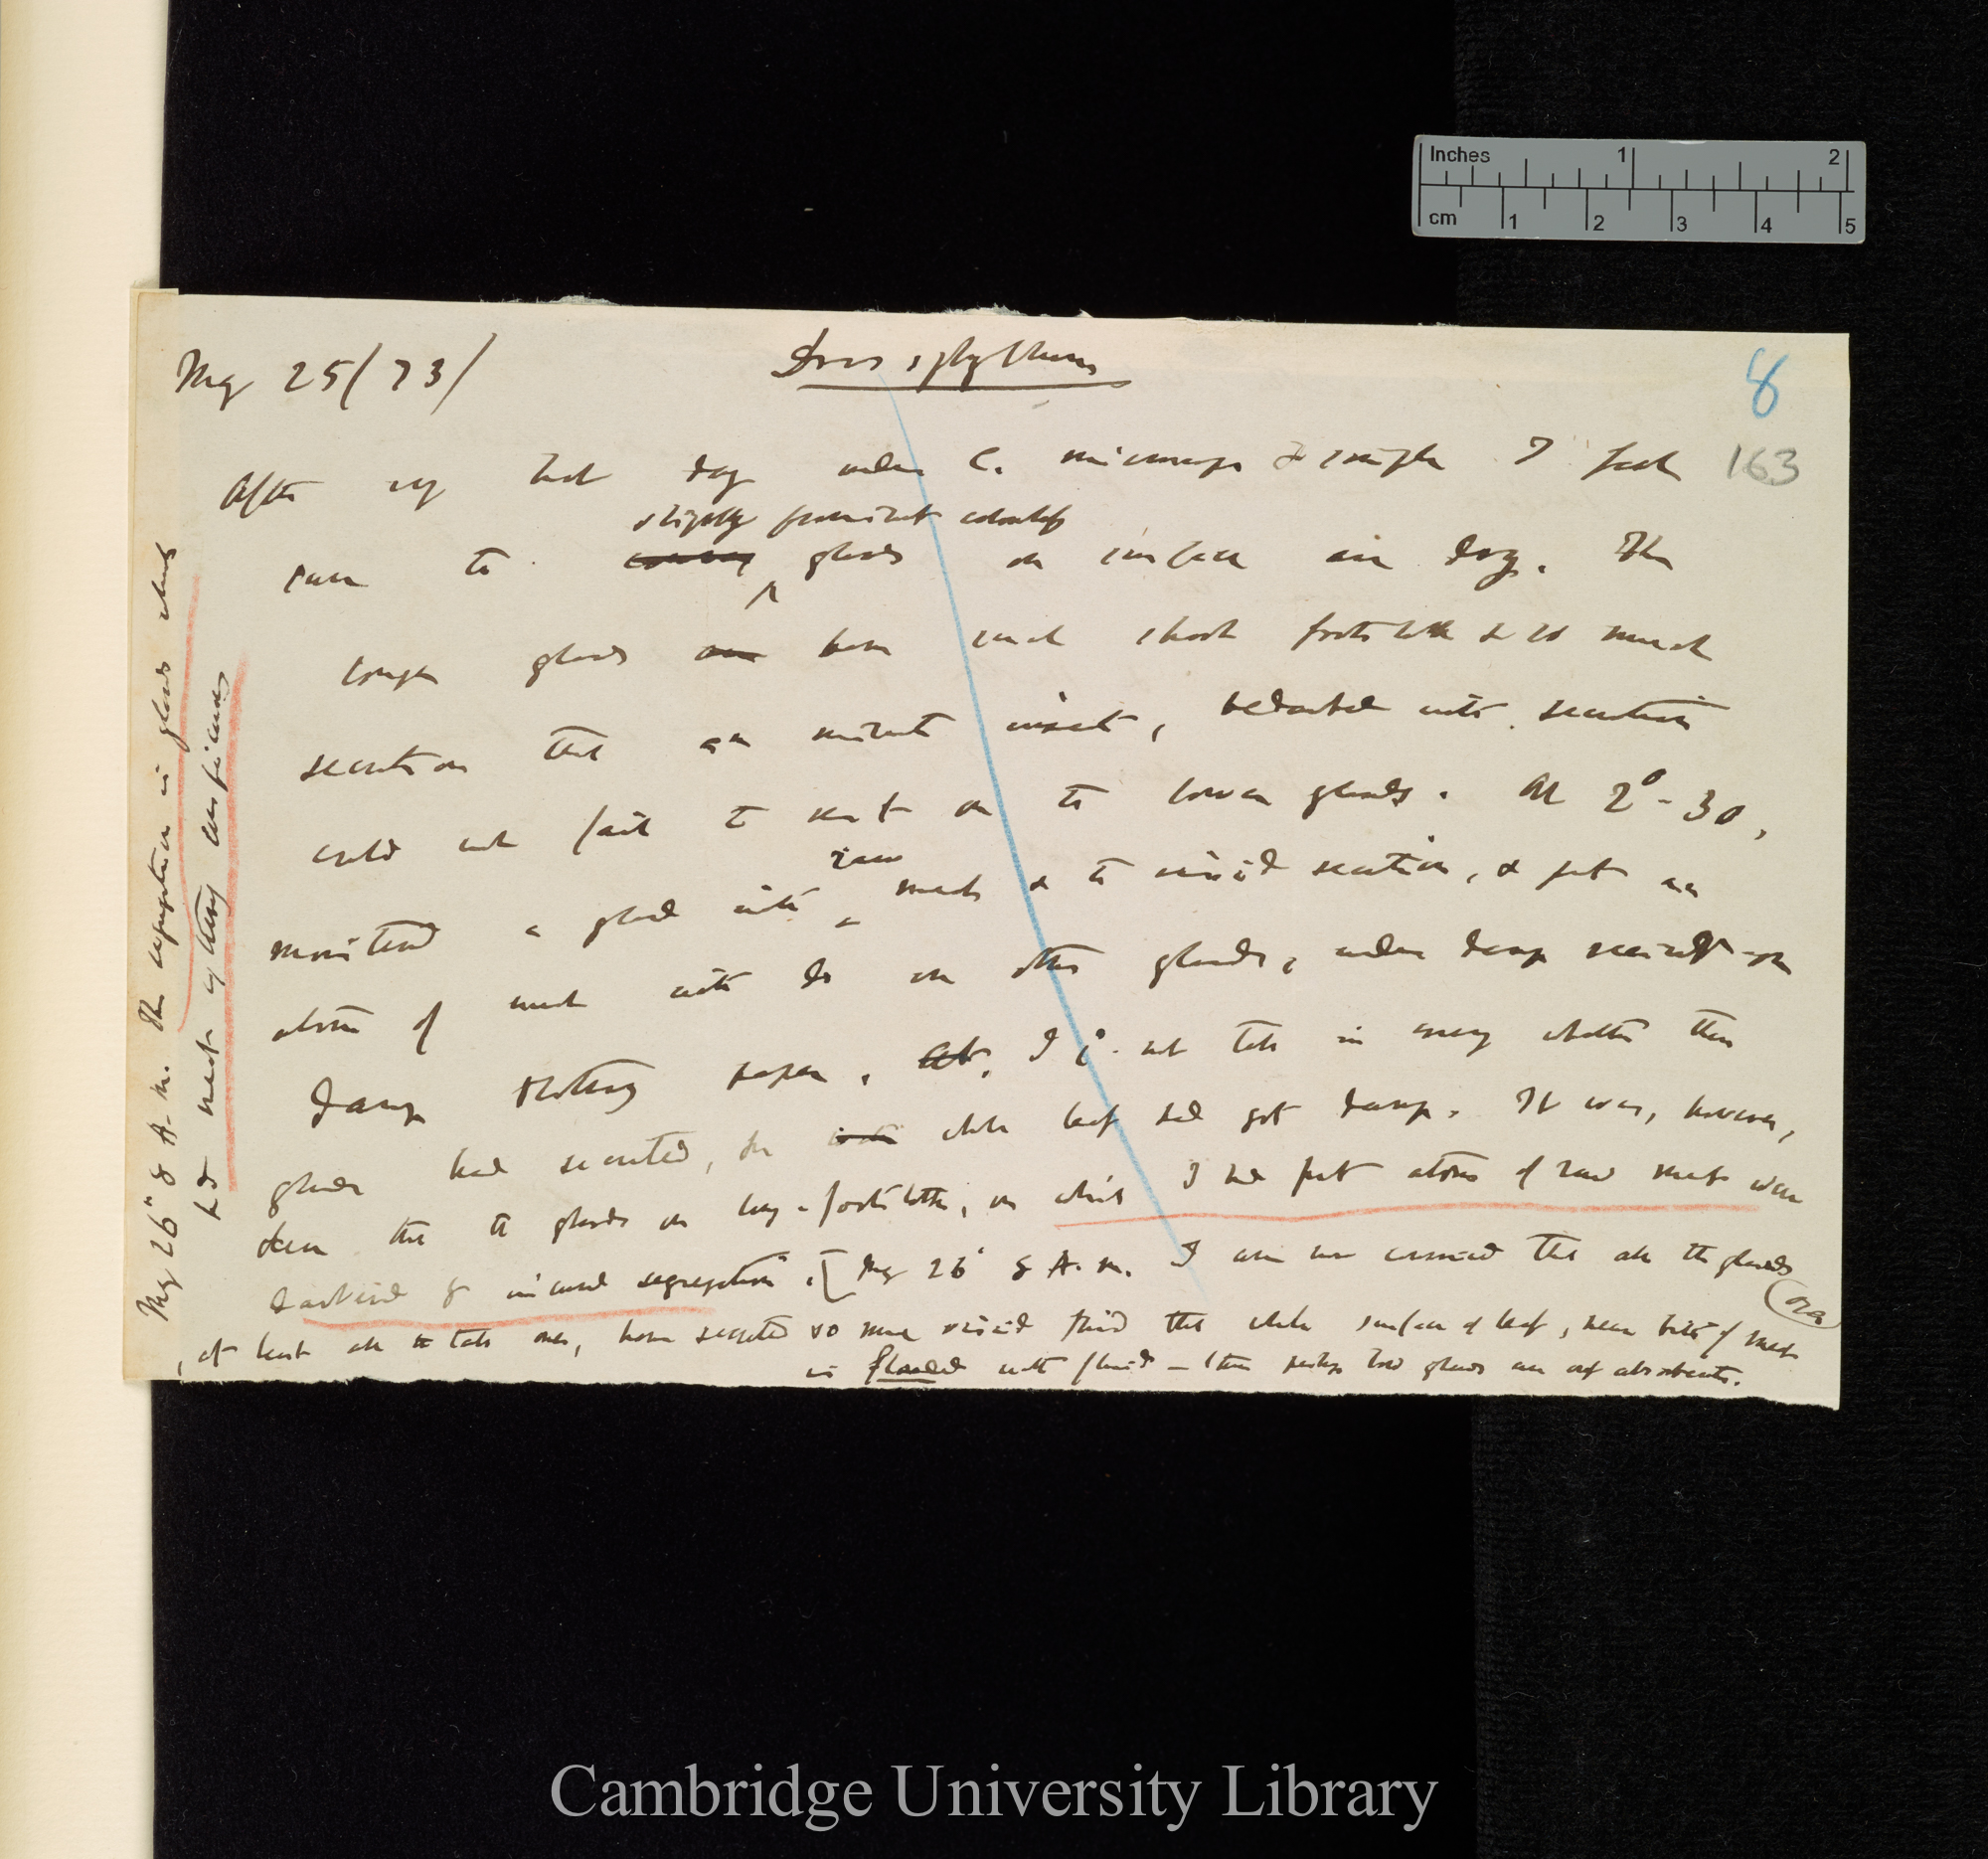 Inches 1 2
cm 1 2 3 4 5
May 25/73/
Drosophyllum
8
163
After my last day under C. microscope & simple I feel
sure the slightly prominent colourless glands on surface are dry. The
longer glands have such short footstalks & so much
secretion that a minute insect, bedaubed with secretion
could not fail to rest on the lower glands. At 2° - 30,
moistened a gland with raw meat & the viscid secretion, & put an
atom of meat with do on other glands, under damp
damp blotting paper. I cd. not tell in many whether these
glands had secreted, for whole leaf had got damp. It was, however,
clear that the glands on long-footstalks, on which I had put atoms of raw meat were
darkened & incurred segregation. [May 26th 8 A.m. I am now convinced that all the glands
(over
, at least all the tall ones, have secreted so much viscid fluid that whole surface of leaf, near bits of meat
is flooded with fluid — then perhaps low glands can act absorbently.
May 26" 8 A.m. The segregation in glands which
had meat very conspicuous
Cambridge University Library